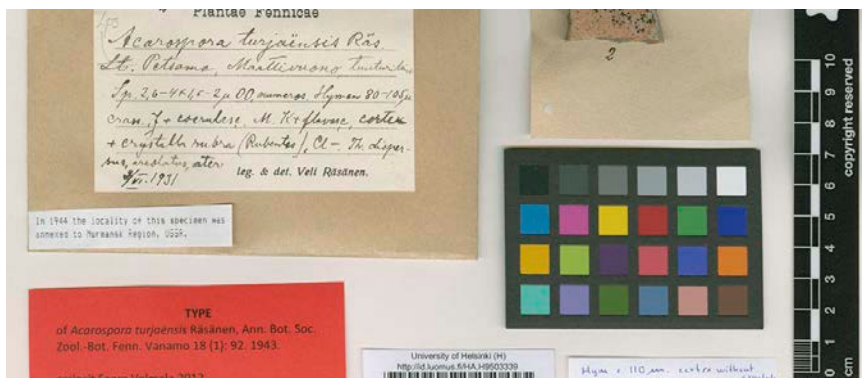 Plantae Fennicae
Acarospora turjaënsis Räs.
Lt. Petsamo, Maattivuono, tunturilla
Sp. 2,6-4×1,5-2µ OO, numeros. Hymen 80-105µ
crass. J + coerulesc. M. K + flavesc, cortex
+ crystalla rubra (Rubentes), Cl - Th. disper-
sus, areolatus, ater
VI. 1931
leg. & det. Veli Räsänen.
In 1944 the locality of this specimen was
annexed to Murmansk Region, USSR.
2
TYPE
of Acarospora turjaënsis Räsänen, Ann. Bot. Soc.
Zool.-Bot. Fenn. Vanamo 18 (1): 92. 1943.
2012
University of Helsinki (H)
http://id.luomus.fi/HA.H9503339
Hym c 110 µm. cortex without
copyright reserved
0 1 2 3 4 5 6 7 8 9 10
cm